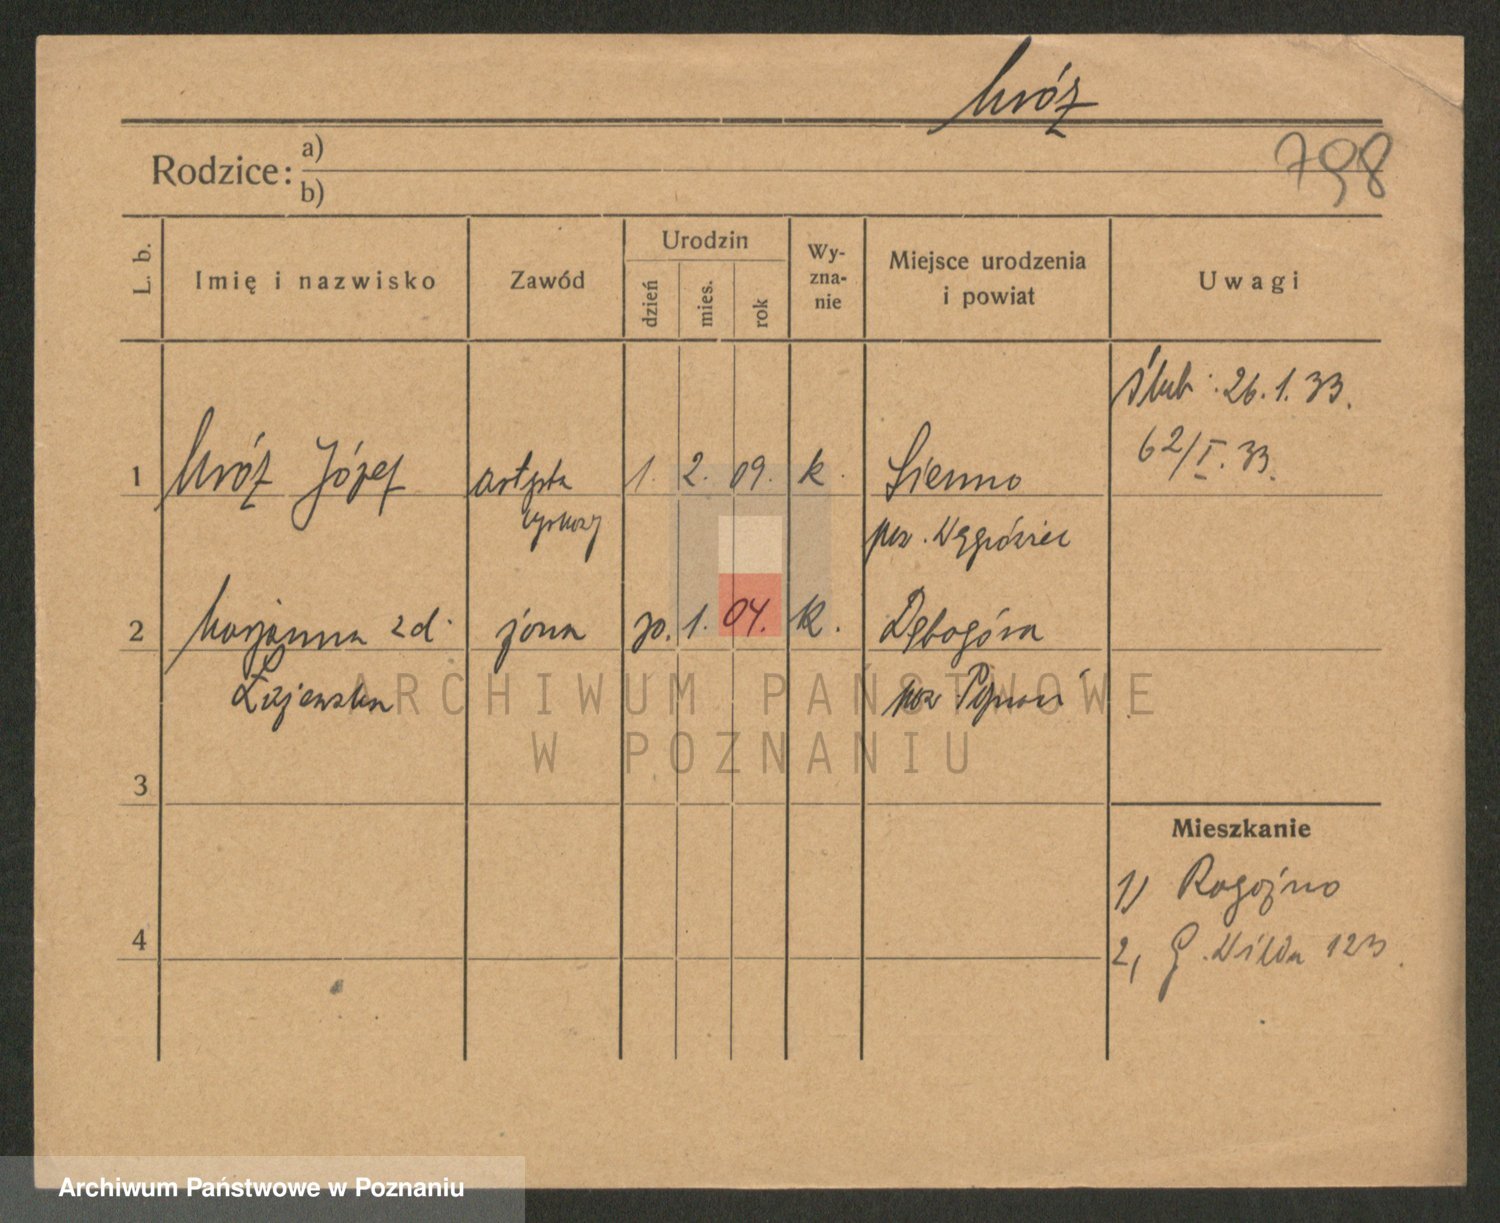 Mróz
798
Rodzice: a)
b)
L. b.
Imię i nazwisko
Zawód
Urodzin
dzień
mies.
rok
Wy-
zna-
nie
Miejsce urodzenia
i powiat
Uwagi
Ślub : 26.1.33.
62/I.33.
1 Mróz Józef artysta 1. 2. 09. k. Sienno
pow. Węgrowiec
2 Marjanna zd. żona 30. 1. 04. k. Dębogóra
Łajewska pow. Poznań
ARCHIWUM PAŃSTWOWE
W POZNANIU
3
Mieszkanie
1) Rogoźno
4
2, G. Wilda 123.
Archiwum Państwowe w Poznaniu